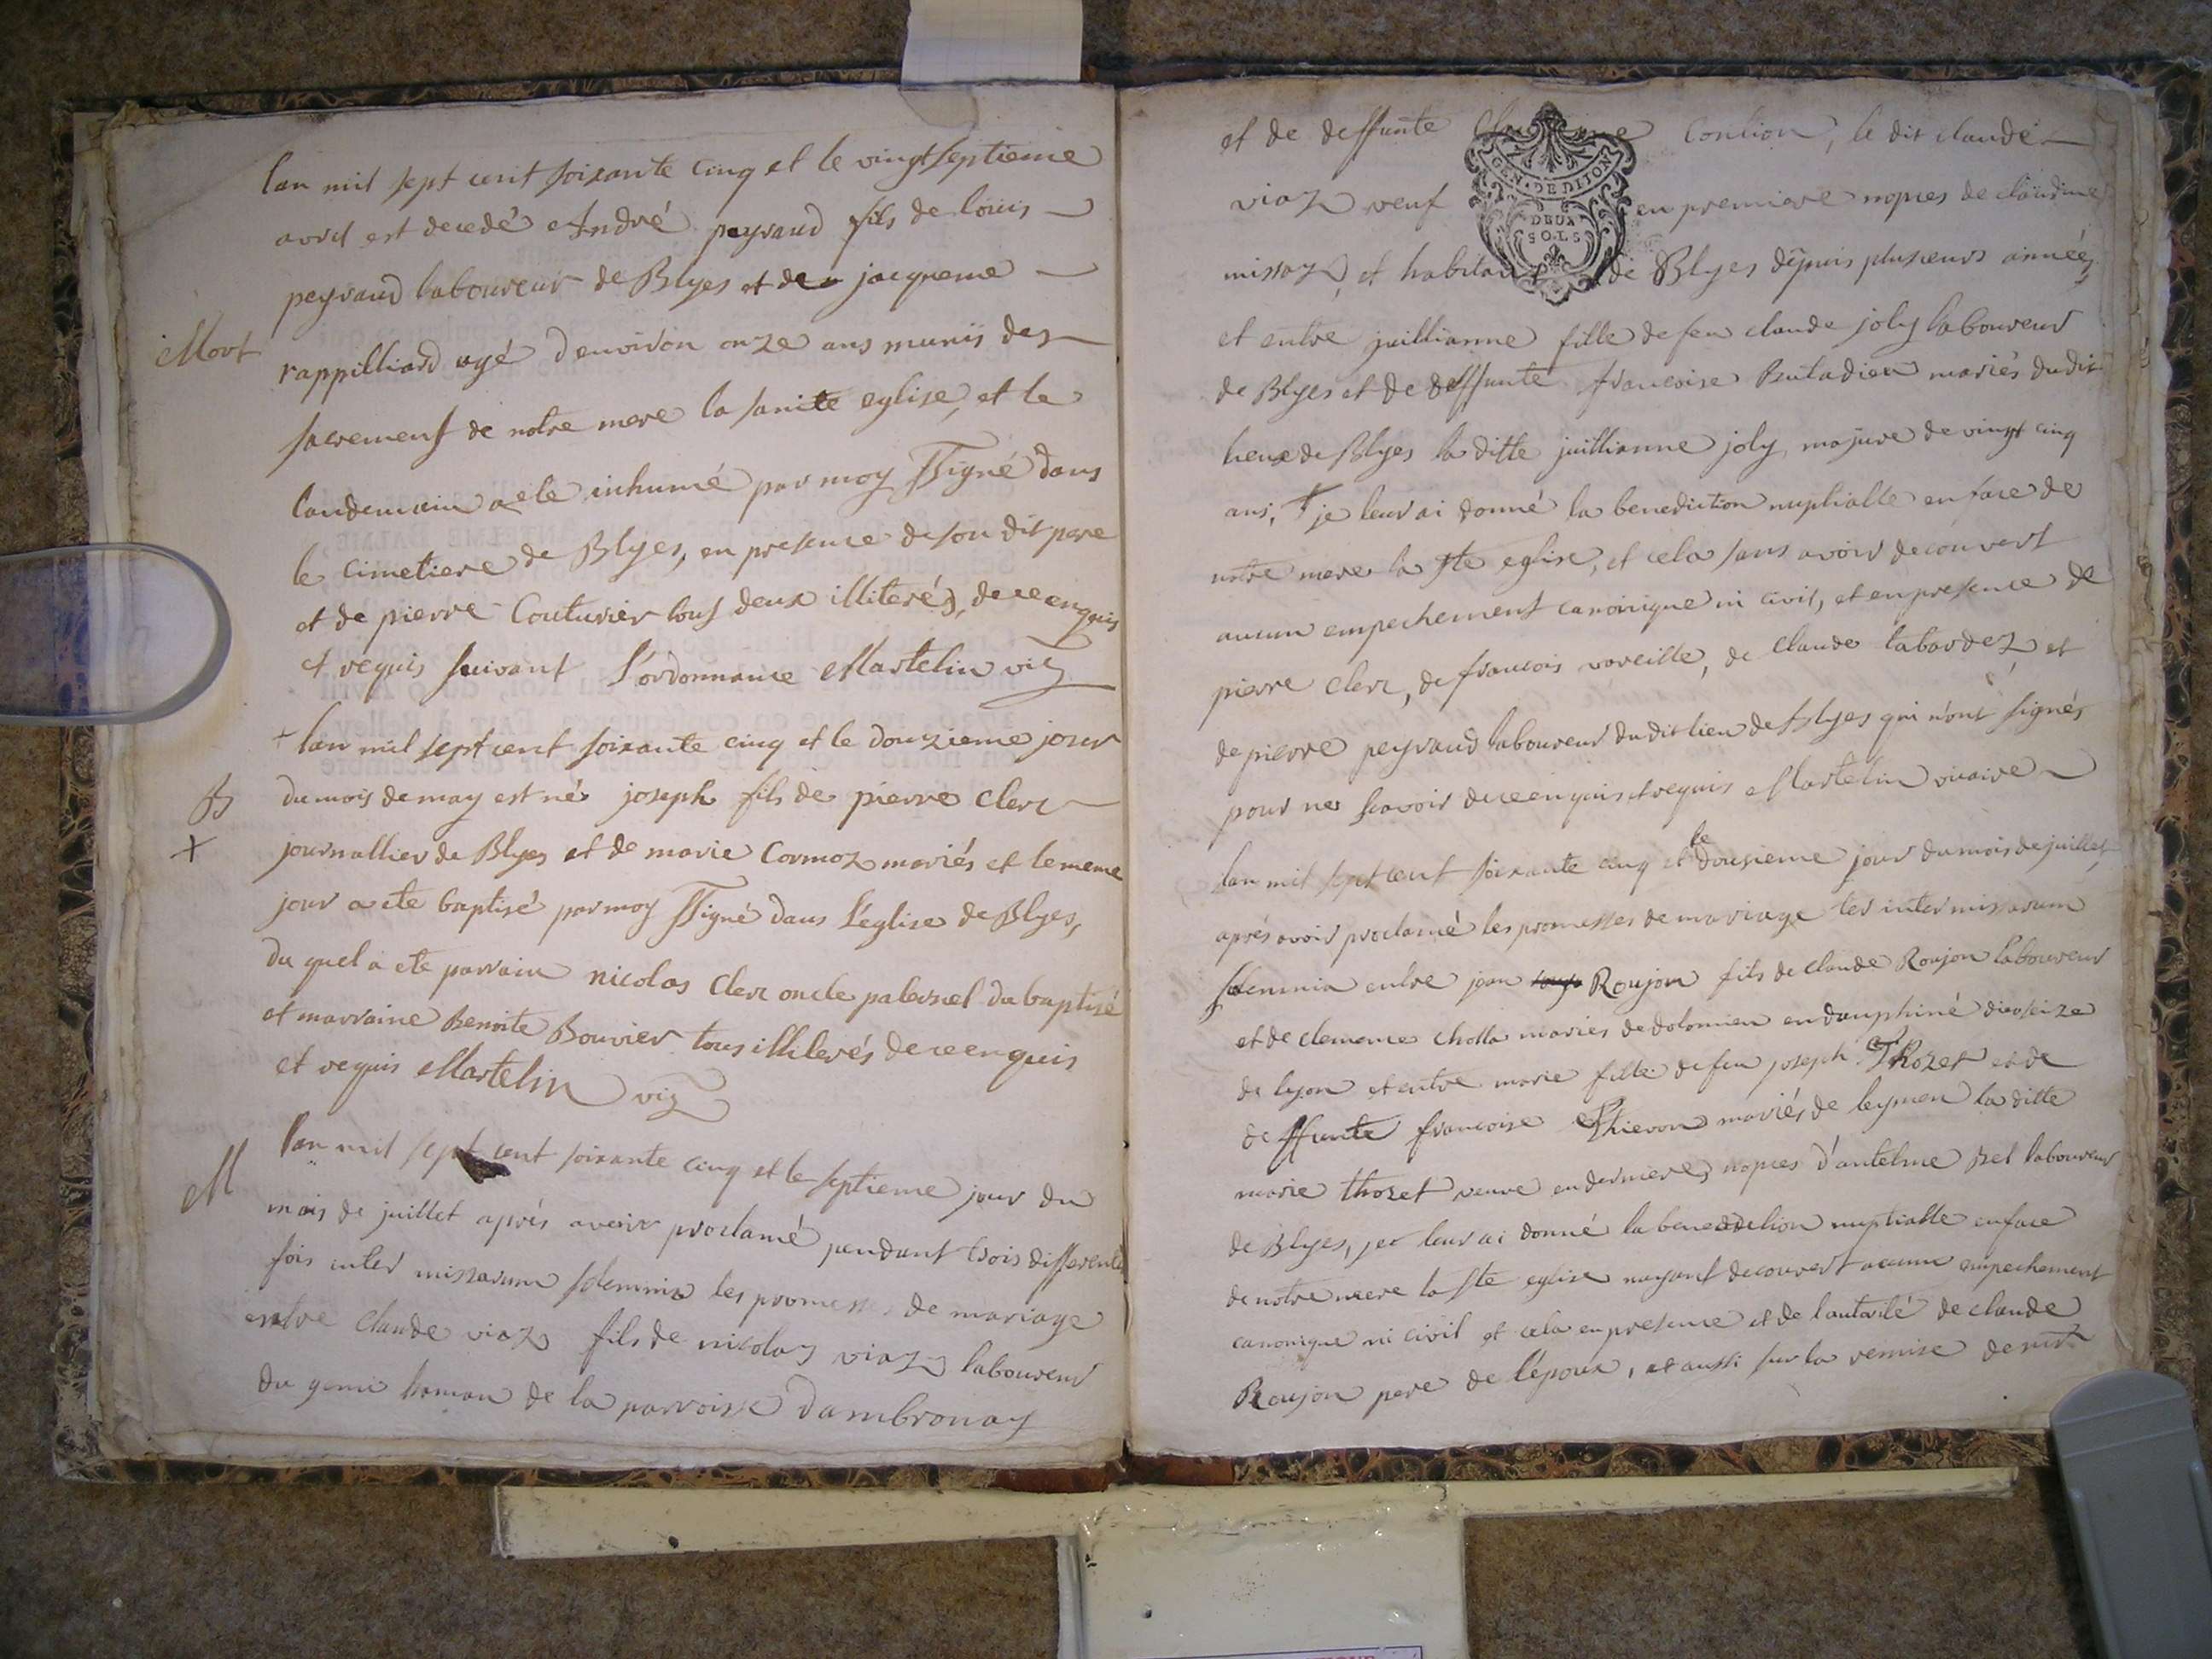 lan mil sept cent soixante cinq et le vingtseptieme
avril est decedé André peyraud fils de loüis
peyraud laboureur de Blyes et de jacqueme
Mort
rappilliard agé denviron onze ans munis des
sacrement de notre mere la sancte eglise, et le
landemain a ete inhumé par moy ssigné dans
le cimetiere de Blyes, en presence de son dit pere
et de pierre Couturier tous deux illiterés, de ce enquis
et requis suivant L'ordonnance Martelin vic
+ lan mil sept cent soixante cinq et le douzieme jour
B
du mois de may est né joseph fils de pierre Clerc
+
journallier de Blyes et de marie Cormoz mariés et le meme
jour a ete baptisé par moy ssigné dans L'eglise de Blyes,
du quel a ete parrain nicolas Clerc oncle paternel du baptisé
et marraine Benoite Bouvier tous illiterés de ce enquis
et requis Martelin vic
M
lan mil sept cent soixante cinq et le septieme jour du
mois de juillet aprés avoir proclamé pendant trois differente
fois inter missarum solemnia les promesses de mariage
entre Claude viaz fils de nicolas viaz laboureur
du de la parroisse dambronay
et de deffunte Conlion, le dit claude
viaz veuf en premiere nopces de claüdine
GEN. DE DIJON
DEUX
SOLS
missaz, et habitant de Blyes dépuis plusieurs années
et entre juillianne fille de feu claude joly laboureur
de Blyes et de deffunte francoise Butadieu mariés du dit
lieux de Blyes la ditte juillianne joly majure de vingt cinq
ans, je leur ai donné la benediction nuptialle en face de
notre mere la ste eglise, et cela sans avoir decouvert
aucun empechement canoinique ni civil, et en presence de
pierre Clerc, de francois voreille, de Claude labardez et
de pierre peyraud laboureur du dit lieu de Blyes qui n'ont signés
pour ne scavoir de ce enquis et requis Martelin vicaire
lan mil sept cent soixante cinq et le dousieme jour du mois de juillet
aprés avoir proclamé les promesses de mariage ter inter missarum
solemnia entre jean Roujon fils de claude Roujon laboureur
et de clemence cholla mariés de dolomieu en dauphiné diocise
de lyon et entre marie fille de feu joseph Thozet et de
deffunte francoise Thievon mariés de leymen la ditte
marie thozet veuve en dernieres nopces d'antelme Bel laboureur
de Blyes, je leur ai donné la benediction nuptialle en face
de notre mere la ste eglise nayant decouvert aucun empechement
canonique ni civil et cela en presence et de l'autorité de claude
Roujon pere de l'époux, et aussi sur la remise de